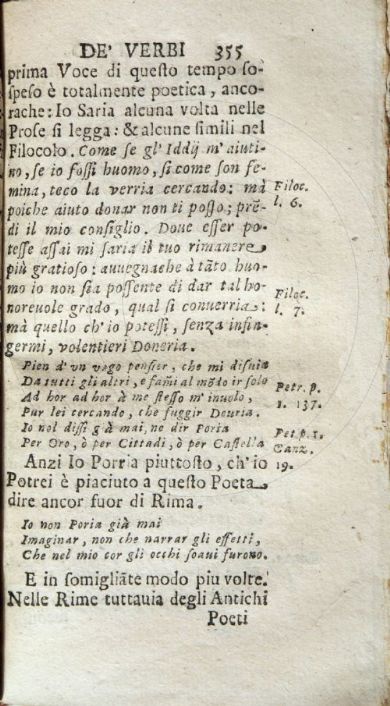 DE' VERBI 355
prima Voce di questo tempo so-
speso è totalmente poetica, anco-
rache: Io Saria alcuna volta nelle
Prose si legga: & alcune simili nel
Filocolo. Come se gl' Iddij m' aiuti-
no, se io fossi huomo, si come son fe-
mina, teco la verria cercando: mà
poiche aiuto donar non ti posso; prẽ-
di il mio consiglio. Doue esser po-
tesse assai mi saria il tuo rimanere
più gratioso: auuegnache à tãto huo-
mo io non sia possente di dar tal ho-
noreuole grado, qual si conuerria:
mà quello ch' io potessi, senza infin-
germi, volentieri Doneria.
Filoc.
l. 6.
Filoc.
l. 7.
Pien d' un vago pensier, che mi desuia
Da tutti gli altri, e fami al mõdo ir solo
Ad hor ad hor à me stesso m' inuolo,
Pur lei cercando, che fuggir Deuria.
Io nol dissi già mai, ne dir Poria
Per Oro, ò per Cittadi, ò per Castella
Petr. p.
1. 137.
Pet p. 1.
Canz.
19.
Anzi Io Porria piuttosto, ch' io
Potrei è piaciuto a questo Poeta
dire ancor fuor di Rima.
Io non Poria già mai
Imaginar, non che narrar gli effetti,
Che nel mio cor gli occhi soaui furono.
E in somigliãte modo piu volte.
Nelle Rime tuttauia degli Antichi
Poeti